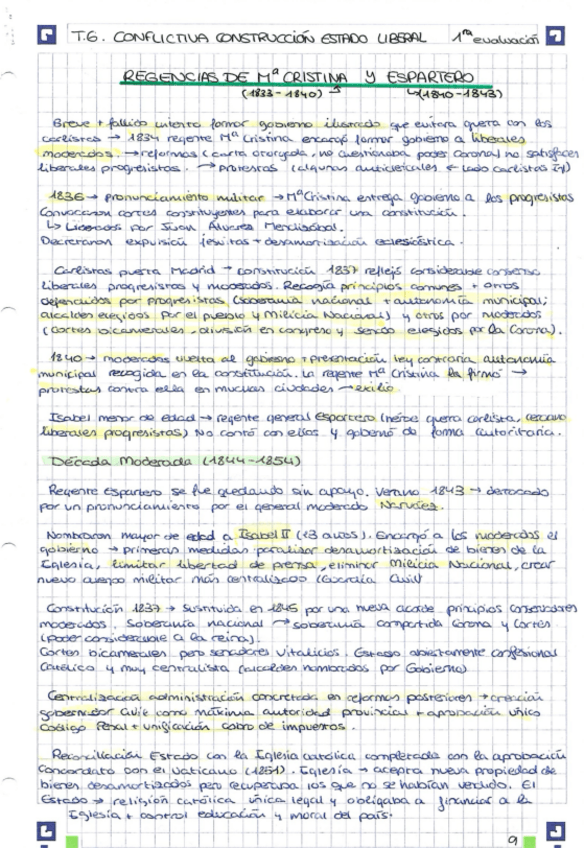 T.6. CONFLICTIVA CONSTRUCCIÓN ESTADO LIBERAL 1ra evaluación
REGENCIAS DE Mª CRISTINA Y ESPARTERO
(1833-1840) (1840-1843)
Breve + fallido intento formar gobierno ilustrado que evitara guerra con los
carlistas → 1834 regente Mª Cristina encargó formar gobierno a liberales
moderados. → reformas (carta otorgada, no cuestionaba poder Corona) no satisfacen
liberales progresistas. → protestas (algunas anticlericales + lado carlistas
1836 → pronunciamiento militar → Mª Cristina entrega gobierno a los progresistas
Convocaron cortes constituyentes para elaborar una constitución.
↳ Liderados por Juan Álvarez Mendizábal.
Decretaron expulsión jesuitas + desamortización eclesiástica.
Carlistas puerta Madrid → constitución 1837 reflejó considerable consenso
liberales progresistas y moderados. Recogía principios comunes + otros
defendidos por progresistas (soberanía nacional + autonomía municipal;
alcaldes elegidos por el pueblo y Milicia Nacional) y otros por moderados
(cortes bicamerales, división en congreso y senado elegidos por la Corona).
1840 → moderados vuelta al gobierno + presentación ley contraria autonomía
municipal recogida en la constitución. La regente Mª Cristina la firmó →
protestas contra ella en muchas ciudades → exilio.
Isabel menor de edad → regente general Espartero (héroe guerra carlista, cercano
liberales progresistas) No contó con ellos y gobernó de forma autoritaria.
Década Moderada (1844-1854)
Regente Espartero se fue quedando sin apoyo. Verano 1843 → derrocado
por un pronunciamiento por el general moderado Narváez.
Nombraron mayor de edad a Isabel II (13 años). Encargó a los moderados el
gobierno → primeras medidas paralizar desamortización de bienes de la
Iglesia, limitar libertad de prensa, eliminar Milicia Nacional, crear
nuevo cuerpo militar más centralizado (Guardia Civil)
Constitución 1837 → sustituida en 1845 por una nueva acorde principios conservadores
moderados. Soberanía nacional → soberanía compartida Corona y Cortes
(poder considerable a la reina).
Cortes bicamerales pero senadores vitalicios. Estado abiertamente confesional
católico y muy centralista (alcaldes nombrados por Gobierno)
Centralización administración concretada en reformas posteriores → creación
gobernador civil como máxima autoridad provincial + aprobación único
Código Penal + unificación cobro de impuestos.
Reconciliación Estado con la Iglesia católica completada con la aprobación
Concordato con el Vaticano (1851). Iglesia → acepta nueva propiedad de
bienes desamortizados pero recuperaba los que no se habían vendido. El
Estado → religión católica única legal y obligaba a financiar a la
Iglesia + control educación y moral del país.
9